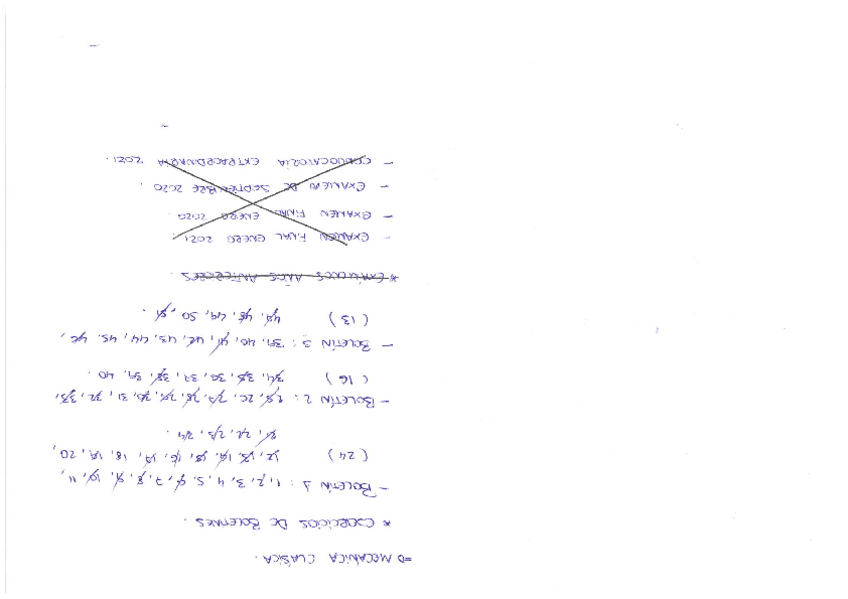 ⇒ MECÁNICA CLÁSICA.
* EJERCICIOS DE BOLETINES.
- BOLETÍN 1 : 1, 2, 3, 4, 5, 6, 7, 8, 9, 10, 11,
(24) 12, 13, 14, 15, 16, 17, 18, 19, 20,
21, 22, 23, 24
- BOLETÍN 2 : 25, 26, 27, 28, 29, 30, 31, 32, 33,
(16) 34, 35, 36, 37, 38, 39, 40.
- BOLETÍN 3 : 39, 40, 41, 42, 43, 44, 45, 46,
(13) 47, 48, 49, 50, 51.
* EXÁMENES AÑOS ANTERIORES.
- EXAMEN FINAL ENERO 2021.
- EXAMEN FINAL ENERO 2020.
- EXAMEN DE SEPTIEMBRE 2020.
- CONVOCATORIA EXTRAORDINARIA 2021.